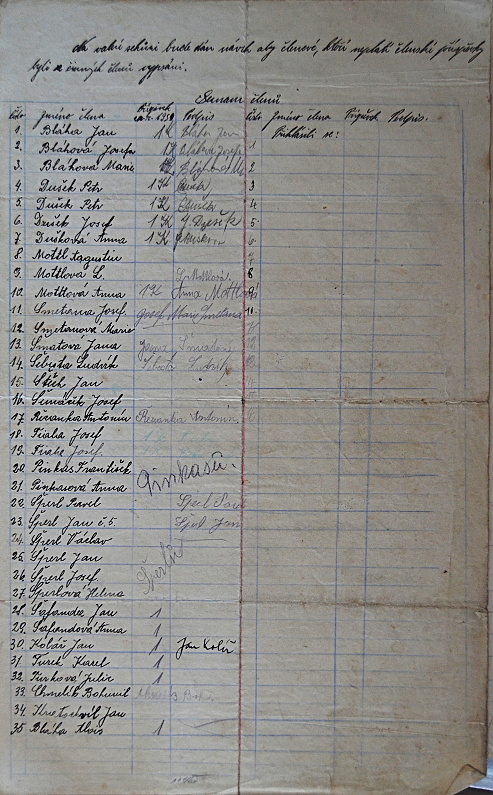 Na valné schůzi bude dán návrh aby členové, kteří neplatí členské příspěvky
byli z činných členů vypsáni.
Seznam členů
číslo Jméno člena Příspěvek Podpis číslo Jméno člena Příspěvek Podpis.
Přihlásili se:
1. Bláha Jan 1K Bláha Jan 1
2. Bláhová Josefa 1K Bláhová Josefa
3. Bláhová Marie 1K Bláhová M 2
4. Dušek Petr 1K Dušek 3
5. Dušek Petr 1K Dušek 4
6. Dušek Josef 1K J. Dušek 5
7. Dušková Anna 1K Dušková 6
8. Mottl Augustin 7
9. Mottlová L. L. Mottlová. 8
10. Mottlová Anna 1K Anna Mottlová 9
11. Smetana Josef. Josef Smetana 11
12. Smetanová Marie
13. Šmatová Jana
14. Šebesta Ludvík
15. Štěch Jan
16. Josef
17. Řezanka Antonín Řezanka Antonín
18. Fiala Josef
19. Fiala Josef.
20. Pinkas František
21. Pinkasová Anna Pinkasů.
22. Šperl Pavel Šperl Pavel
23. Šperl Jan č. 5. Šperl Jan
24. Šperl Václav
25. Šperl Jan Šperlů
26. Šperl Josef.
27. Šperlová Helena
28. Šafanda Jan 1
29. Šafandová Anna 1
30. Kolář Jan 1 Jan Kolář
31. Turek Karel 1
32. Turková Julie 1
33. Chmelík Bohumil
34. Kretschvil Jan
35 Bláha Alois 1